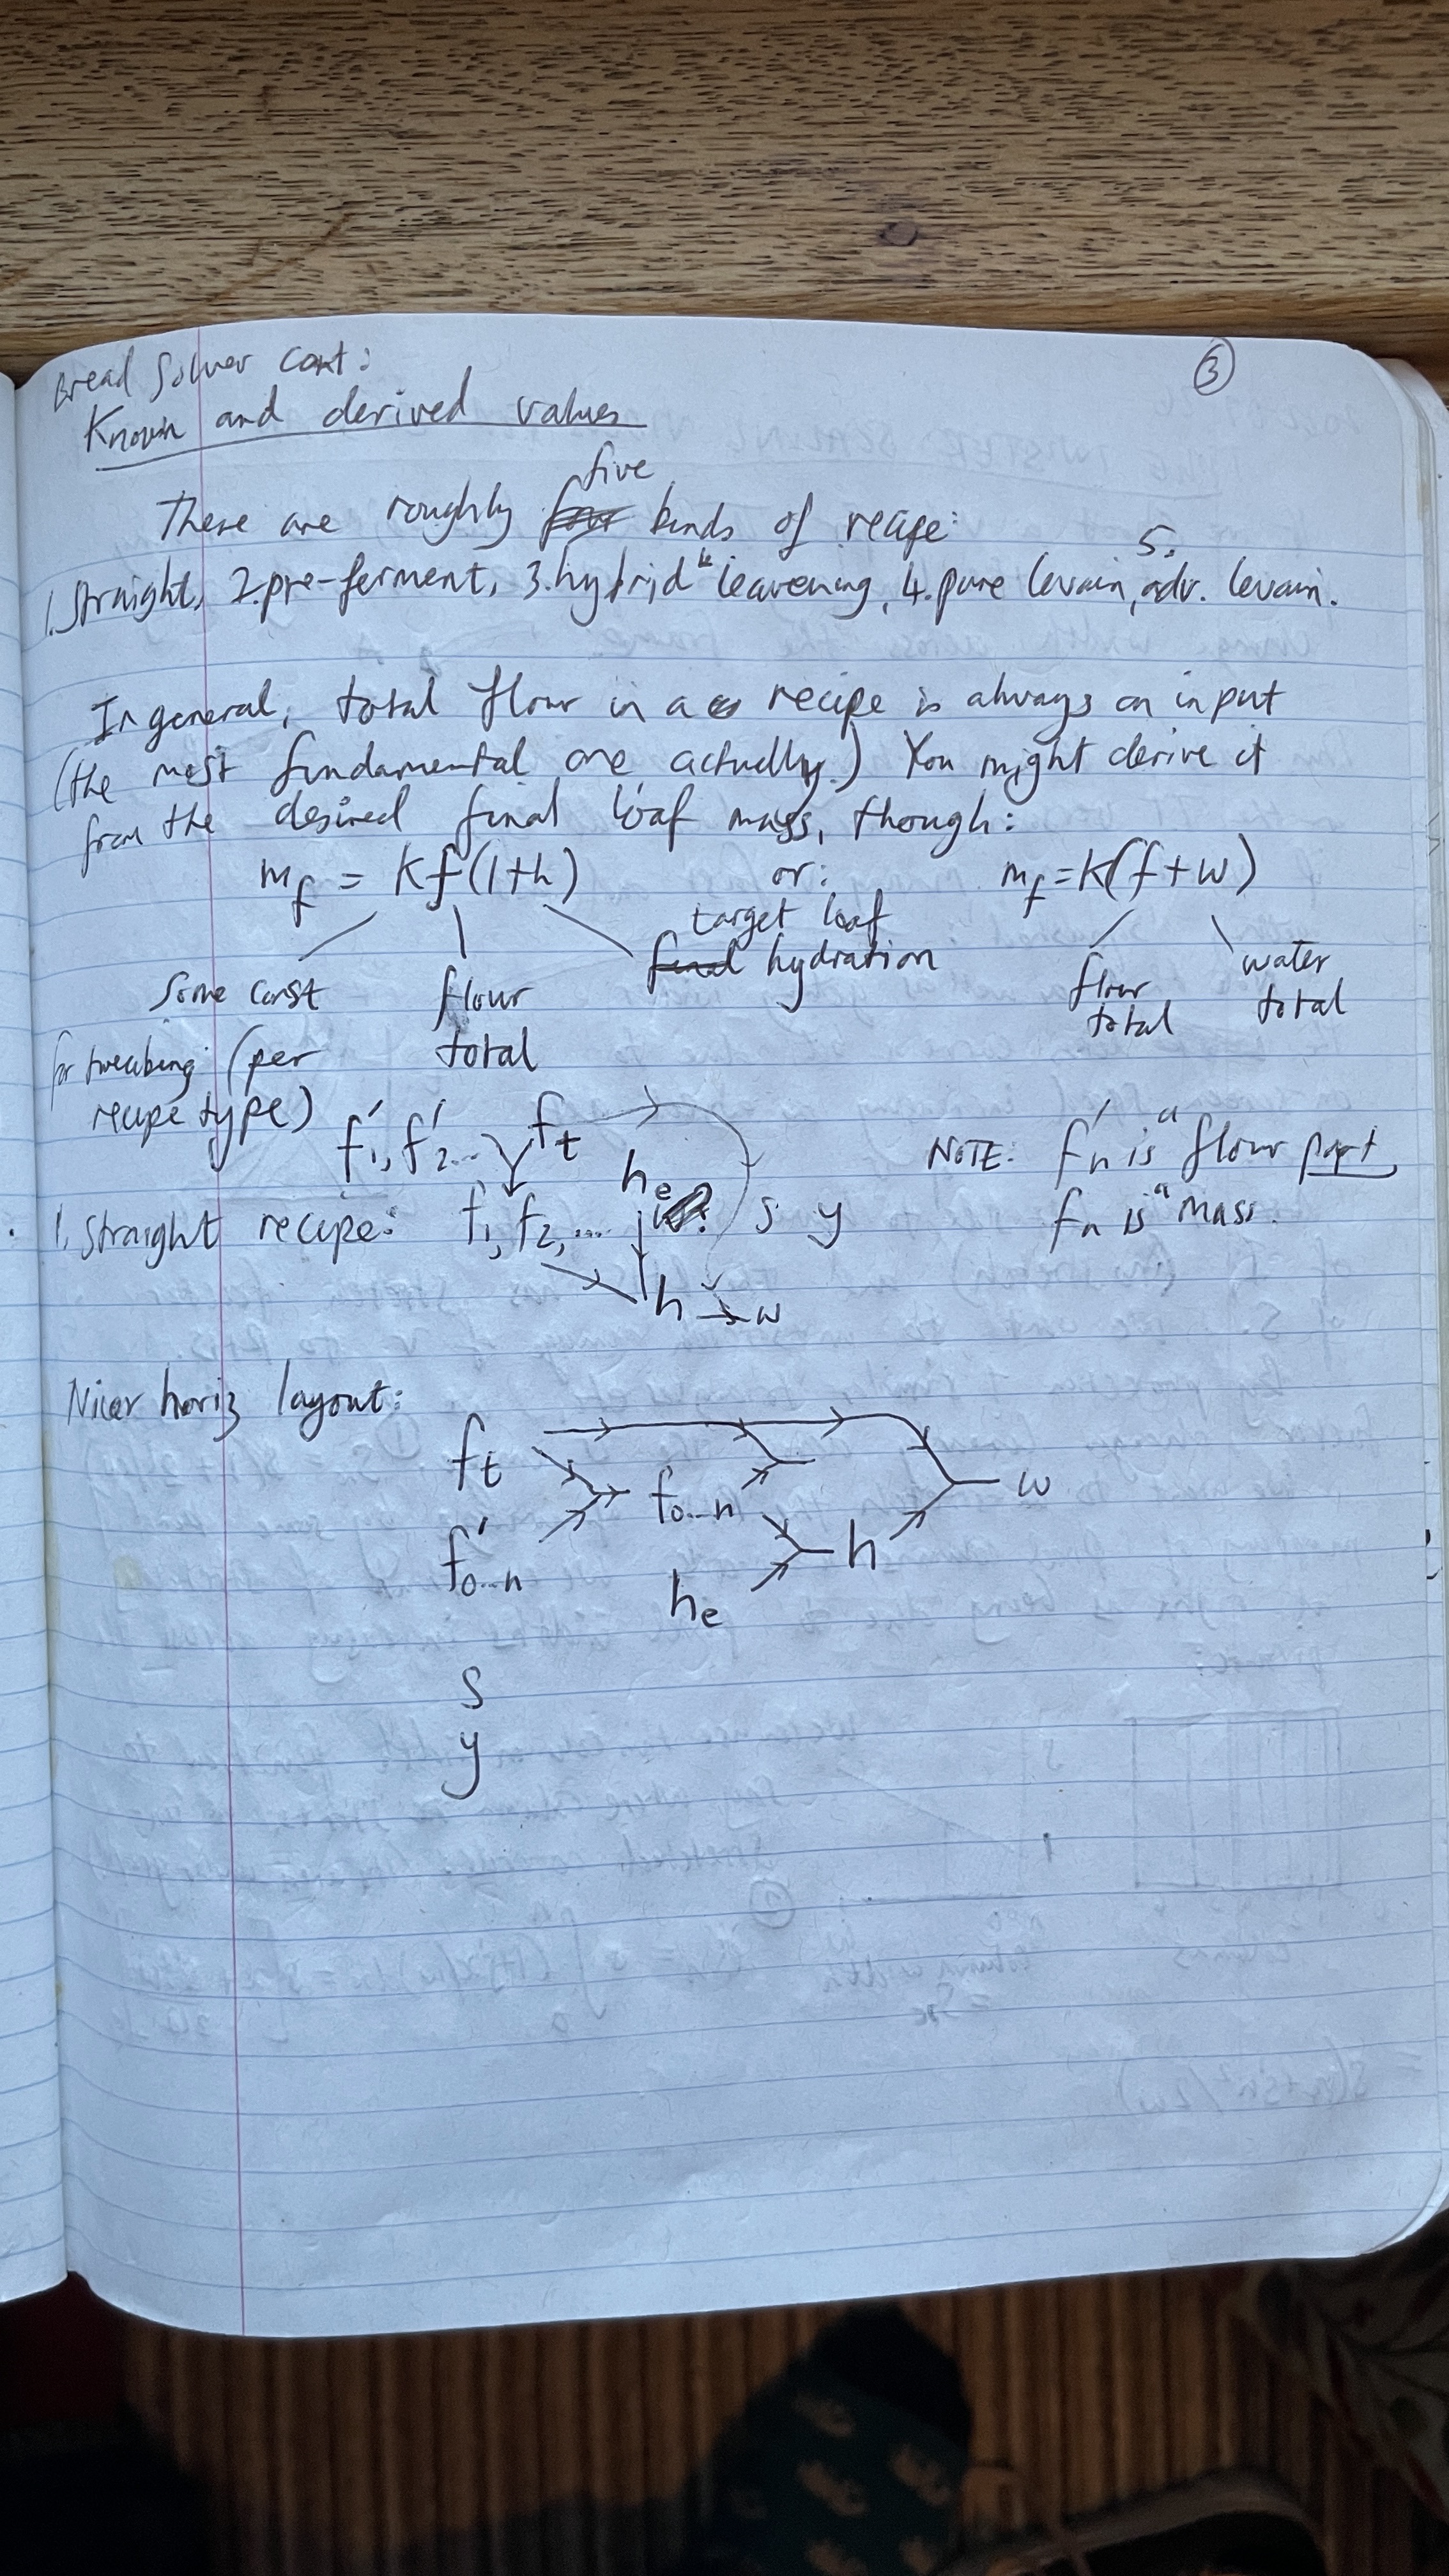 Bread Solver cont:
③
Known and derived values
five
There are roughly four kinds of recipe:
5.
1.Straight, 2.pre-ferment, 3.hybrid leavening, 4.pure levain, adv. levain.
In general, total flour in a recipe is always an input
(the most fundamental one actually.) You might derive it
from the desired final loaf mass, though:
m_f = kf(1+h) or: m_f = k(f+w)
target loaf
some const flour final hydration flour water
total total
for tweaking (per total
recipe type)
f'1, f'2... ft
NOTE: f'n is a flour part
he
fn is a mass.
1. Straight recipe: f1, f2, ... s y
h → w
Nicer horiz layout:
ft
f0...n w
h
f'0...n
he
s
y